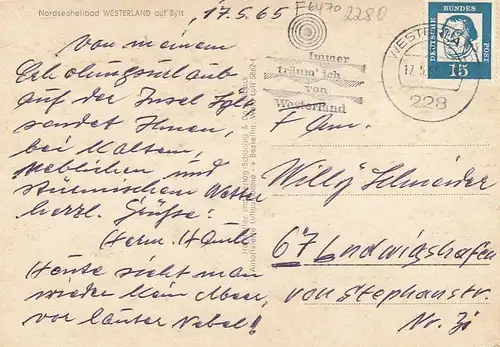 Nordseeheilbad WESTERLAND auf Sylt
17.5.65
F6470
2280
Von meinem
Erholungsurlaub
auf der Insel Sylt
sendet Ihnen,
bei kaltem,
neblichen und
stürmischem Wetter
herzl. Grüße:
Herm.
Heute sieht man
wieder kein Meer,
vor lauter Nebel!
Immer
träum' ich
von
Westerland
WESTERLAND
17.5.
228
DEUTSCHE BUNDESPOST
15
Fam.
Willy Schneider
67 Ludwigshafen
von Stephanstr.
Nr.